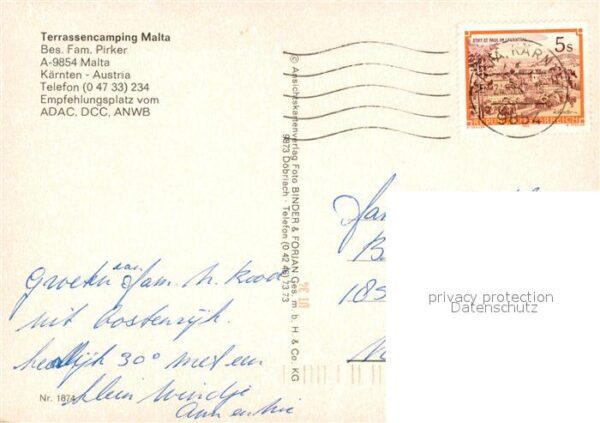 Terrassencamping Malta
Bes. Fam. Pirker
A-9854 Malta
Kärnten - Austria
Telefon (0 47 33) 234
Empfehlungsplatz vom
ADAC, DCC, ANWB
STIFT ST. PAUL IM LAVANTTAL
5s
9854
© Ansichtskartenverlag Foto BINDER & FORIAN Ges. m. b. H. & Co. KG
9873 Döbriach - Telefon (0 42 46) 73 73
Groeten aan fam. h.
uit Oostenrijk.
heerlijk 30° met een
klein windje
Nr. 1874
Fam
B
185
privacy protection
Datenschutz